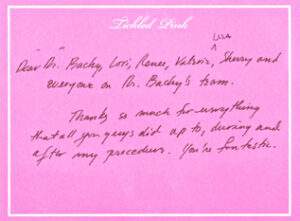 Tickled Pink
LISA
Dear "Dr." Bachy, Lori, Renee, Valerie, Sherry and
everyone on Dr. Bachy's team.
Thanks so much for everything
that all you guys did up to, during and
after my procedure. You're fantastic.